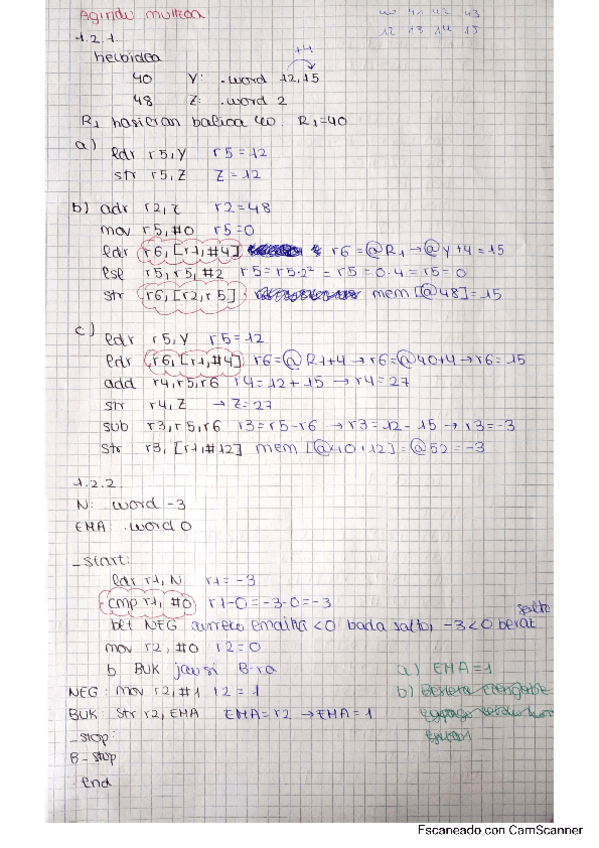 Agindu multzoa
40 41 42 43
12 13 14 15
1.2.1.
helbidea
+4
40 Y: .word 12,15
48 Z: .word 2
R1 hasieran balioa 40 R1=40
a)
ldr r5,Y r5=12
str r5,Z Z=12
b) adr r2,z r2=48
mov r5,#0 r5=0
ldr r6,[r1,#4] r6=@R1→@Y+4=15
lsl r5,r5,#2 r5=r5·2²=r5=0·4=r5=0
str r6,[r2,r5] mem[@48]=15
c)
ldr r5,Y r5=12
ldr r6,[r1,#4] r6=@R1+4→r6=@40+4→r6=15
add r4,r5,r6 r4=12+15→r4=27
str r4,Z →Z=27
sub r3,r5,r6 r3=r5-r6 →r3=12-15→r3=-3
str r3,[r1,#12] mem[@40+12]=@52=-3
1.2.2.
N: .word -3
EMA: .word 0
_start:
ldr r1,N r1=-3
cmp r1,#0 r1-0=-3-0=-3
salto
blt NEG aurreko emaitza <0 bada salto, -3<0 beraz
mov r2,#0 r2=0
b BUK jauzi B-ra
a) EMA=1
NEG: mov r2,#1 r2=1
b)
BUK: str r2,EMA EMA=r2→EMA=1
_stop:
B-stop
end
Escaneado con CamScanner